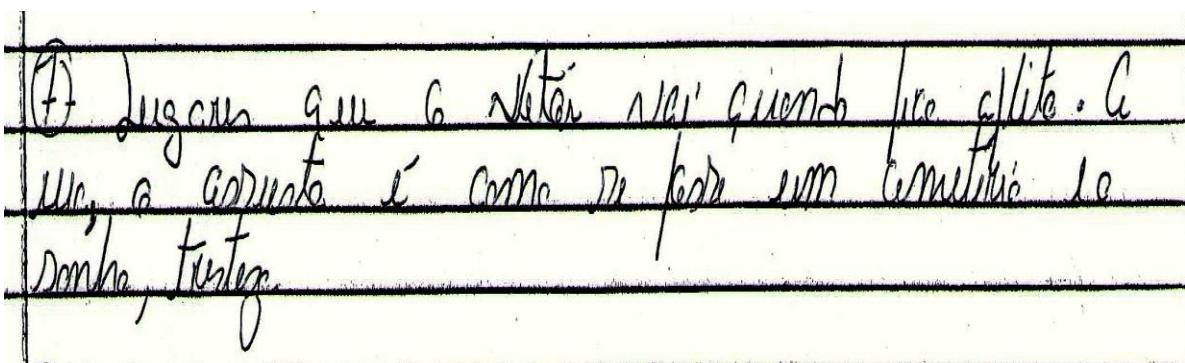 7) Lugares que o Netár vai quando fica aflito. A
rua, a assusta é como se fosse um cemitério e o
sonho, tristeza.